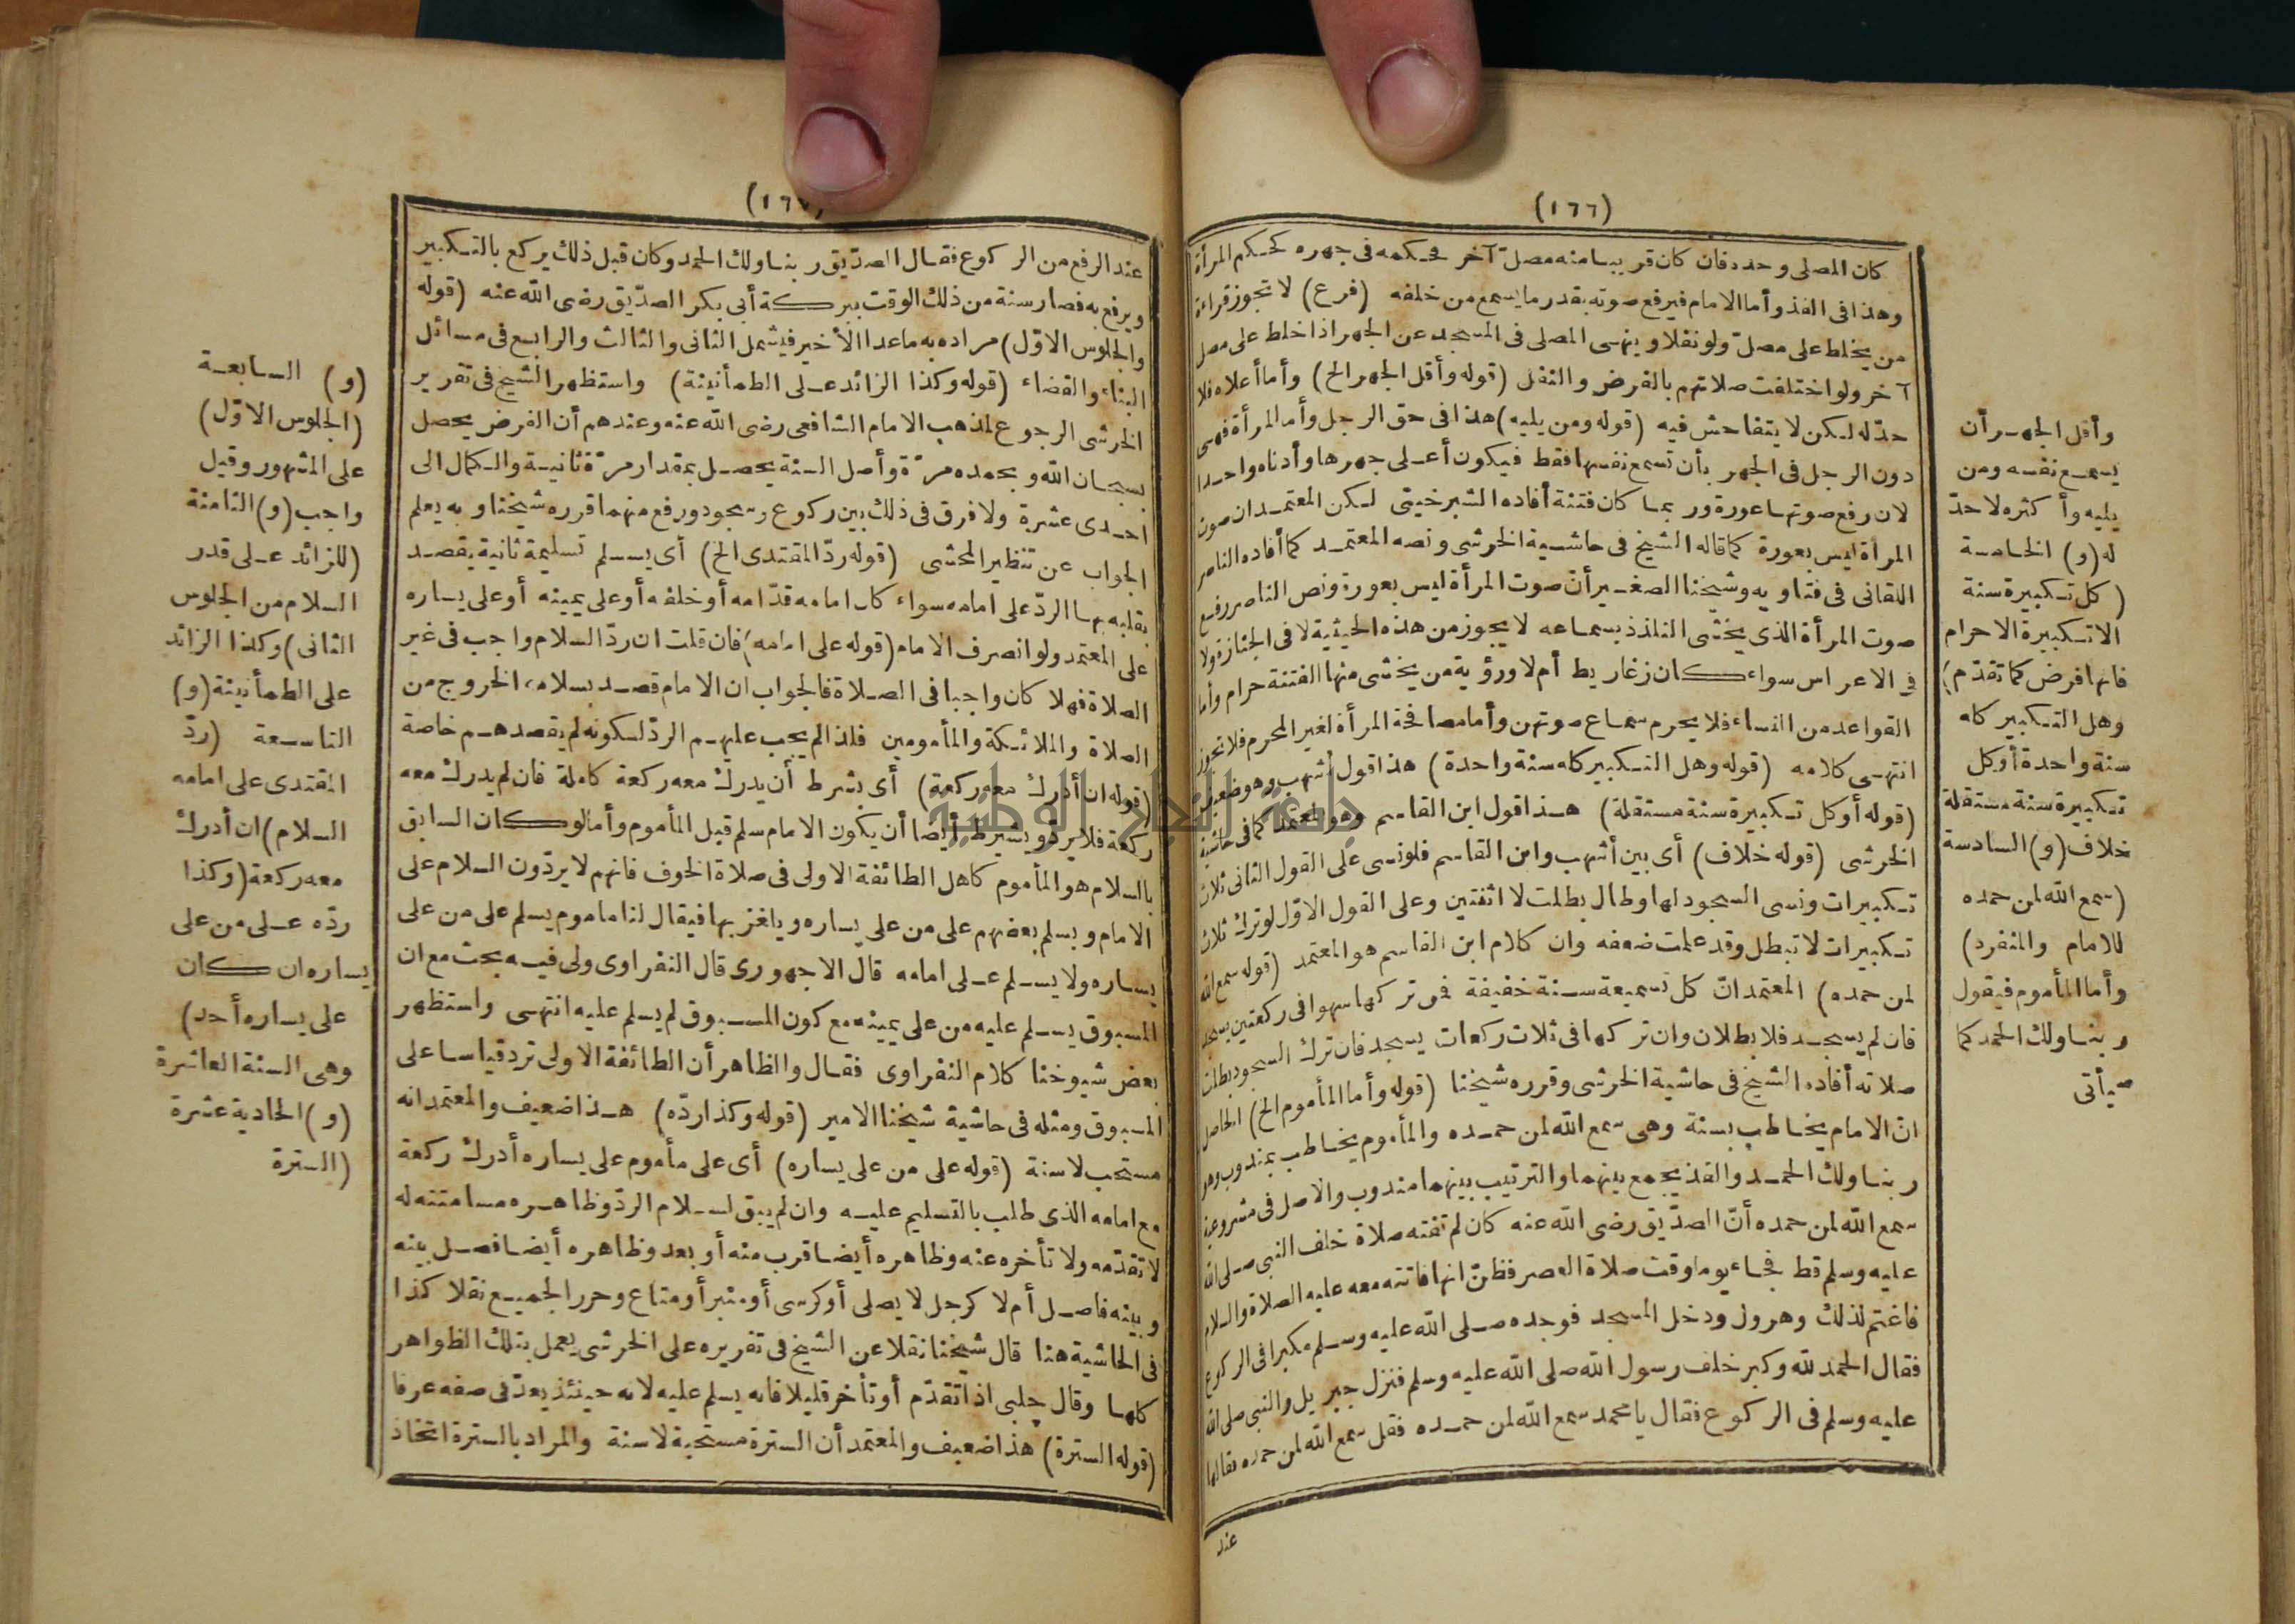 (١٦٦)
كان المصلى وحده فان كان قريبا منه مصلّ آخر فحكمه فى جهره كحكم المرأة
وهذا فى الفذ وأما الامام فيرفع صوته بقدر ما يسمع من خلفه (فرع) لا تجوز قراءة
من يخلط على مصلّ ولو نفلا وينهى المصلى فى المسجد عن الجهر اذا خلط على مصل
آخر ولو اختلفت صلاتهم بالفرض والنفل (قوله وأقل الجهر الخ) وأما أعلاه فلا
حدّ له لكن لا يتفاحش فيه (قوله ومن يليه) هذا فى حق الرجل وأما المرأة فهى
دون الرجل فى الجهر بأن تسمع نفسها فقط فيكون أعلى جهرها وأدناه واحدا
لان رفع صوتها عورة وربما كان فتنة أفاده الشبرخيتى لكن المعتمد ان صوت
المرأة ليس بعورة كما قاله الشيخ فى حاشية الخرشى ونصه المعتمد كما أفاده الناصر
اللقانى فى فتاويه وشيخنا الصغير أنّ صوت المرأة ليس بعورة ونص الناصر رفع
صوت المرأة الذى يخشى التلذذ بسماعه لا يجوز من هذه الحيثية لا فى الجنازة ولا
فى الاعراس سواء كان زغاريط أم لا ورؤية من يخشى منها الفتنة حرام وأما
القواعد من النساء فلا يحرم سماع صوتهن وأما مصافحة المرأة لغير المحرم فلا تجوز
انتهى كلامه (قوله وهل التكبير كله سنة واحدة) هذا قول أشهب وهو ضعيف
(قوله أو كل تكبيرة سنة مستقلة) هذا قول ابن القاسم وهو المعتمد كما فى حاشية
الخرشى (قوله خلاف) أى بين أشهب وابن القاسم فلو نسى على القول الثانى ثلاث
تكبيرات ونسى السجود لها وطال بطلت لا اثنتين وعلى القول الاوّل لو ترك ثلاث
تكبيرات لا تبطل وقد علمت ضعفه وان كلام ابن القاسم هو المعتمد (قوله سمع الله
لمن حمده) المعتمد انّ كل تسميعة سنة خفيفة فمن تركها سهوا فى ركعتين يسجد
فان لم يسجد فلا بطلان وان تركها فى ثلاث ركعات يسجد فان ترك السجود بطلت
صلاته أفاده الشيخ فى حاشية الخرشى وقرره شيخنا (قوله وأما المأموم الخ) الحاصل
انّ الامام يخاطب بسنة وهى سمع الله لمن حمده والمأموم يخاطب بمندوب وهو
ربنا ولك الحمد والفذ يجمع بينهما والترتيب بينهما مندوب والاصل فى مشروعية
سمع الله لمن حمده أنّ الصدّيق رضى الله عنه كان لم تفته صلاة خلف النبى صلى الله
عليه وسلم قط فجاء يوما وقت صلاة العصر فظنّ انها فاتته معه عليه الصلاة والسلام
فاغتم لذلك وهرول ودخل المسجد فوجده صلى الله عليه وسلم مكبرا فى الركوع
فقال الحمد لله وكبر خلف رسول الله صلى الله عليه وسلم فنزل جبريل والنبى صلى الله
عليه وسلم فى الركوع فقال يا محمد سمع الله لمن حمده فقل سمع الله لمن حمده فقالها
عند
وأقل الجهر أن
يسمع نفسه ومن
يليه وأكثره لا حدّ
له (و) الخامسة
(كل تكبيرة سنة
الا تكبيرة الاحرام
فانها فرض كما تقدّم)
وهل التكبير كله
سنة واحدة أو كل
تكبيرة سنة مستقلة
خلاف (و) السادسة
(سمع الله لمن حمده
للامام والمنفرد)
وأما المأموم فيقول
ربنا ولك الحمد كما
سيأتى
(١٦٧)
عند الرفع من الركوع فقال الصدّيق ربنا ولك الحمد وكان قبل ذلك يركع بالتكبير
ويرفع به فصار سنة من ذلك الوقت ببركة أبى بكر الصدّيق رضى الله عنه (قوله
والجلوس الاوّل) مراده به ماعدا الأخير فيشمل الثانى والثالث والرابع فى مسائل
البناء والقضاء (قوله وكذا الزائد على الطمأنينة) واستظهر الشيخ فى تقرير
الخرشى الرجوع لمذهب الامام الشافعى رضى الله عنه وعندهم أن الفرض يحصل
بسبحان الله وبحمده مرّة وأصل السنة يحصل بمقدار مرّة ثانية والكمال الى
احدى عشرة ولا فرق فى ذلك بين ركوع وسجود ورفع منهما قرره شيخنا وبه يعلم
الجواب عن تنظير المحشى (قوله ردّ المقتدى الخ) أى يسلم تسليمة ثانية يقصد
بقلبه بها الردّ على امامه سواء كان امامه قدّامه أو خلفه أو على يمينه أو على يساره
على المعتمد ولو انصرف الامام (قوله على امامه) فان قلت ان ردّ السلام واجب فى غير
الصلاة فهلا كان واجبا فى الصلاة فالجواب ان الامام قصد بسلامه الخروج من
الصلاة والملائكة والمأمومين فلذا لم يجب عليهم الردّ لكونه لم يقصدهم خاصة
(قوله ان أدرك معه ركعة) أى بشرط أن يدرك معه ركعة كاملة فان لم يدرك معه
ركعة فلا يردّ ويشترط أيضا أن يكون الامام سلم قبل المأموم وأما لو كان السابق
بالسلام هو المأموم كاهل الطائفة الاولى فى صلاة الخوف فانهم لا يردّون السلام على
الامام ويسلم بعضهم على من على يساره ويلغز بها فيقال لنا ماموم يسلم على من على
يساره ولا يسلم على امامه قال الاجهورى قال النفراوى ولى فيه بحث مع ان
المسبوق يسلم عليه من على يمينه مع كون المسبوق لم يسلم عليه انتهى واستظهر
بعض شيوخنا كلام النفراوى فقال والظاهر أن الطائفة الاولى ترد قياسا على
المسبوق ومثله فى حاشية شيخنا الامير (قوله وكذا ردّه) هذا ضعيف والمعتمد انه
مستحب لا سنة (قوله على من على يساره) أى على مأموم على يساره أدرك ركعة
مع امامه الذى طلب بالتسليم عليه وان لم يبق لسلام الردّ وظاهره مسامتته له
لا تقدّمه ولا تأخره عنه وظاهره أيضا قرب منه أو بعد وظاهره أيضا فصل بينه
وبينه فاصل أم لا كرجل لا يصلى أو كرسى أو منبر أو متاع وحرر الجميع نقلا كذا
فى الحاشية هنا قال شيخنا نقلا عن الشيخ فى تقريره على الخرشى يعمل بتلك الظواهر
كلها وقال چلبى اذا تقدّم أو تأخر قليلا فانه يسلم عليه لانه حينئذ يعدّ فى صفه عرفا
(قوله السترة) هذا ضعيف والمعتمد أن السترة مستحبة لا سنة والمراد بالسترة اتخاذ
(و) السابعة
(الجلوس الاوّل)
على المشهور وقيل
واجب (و) الثامنة
(للزائد على قدر
السلام من الجلوس
الثانى) وكذا الزائد
على الطمأنينة (و)
التاسعة (ردّ
المقتدى على امامه
السلام) ان أدرك
معه ركعة (وكذا
ردّه على من على
يساره ان كان
على يساره أحد)
وهى السنة العاشرة
(و) الحادية عشرة
(السترة
جامعة النجاح الوطنية